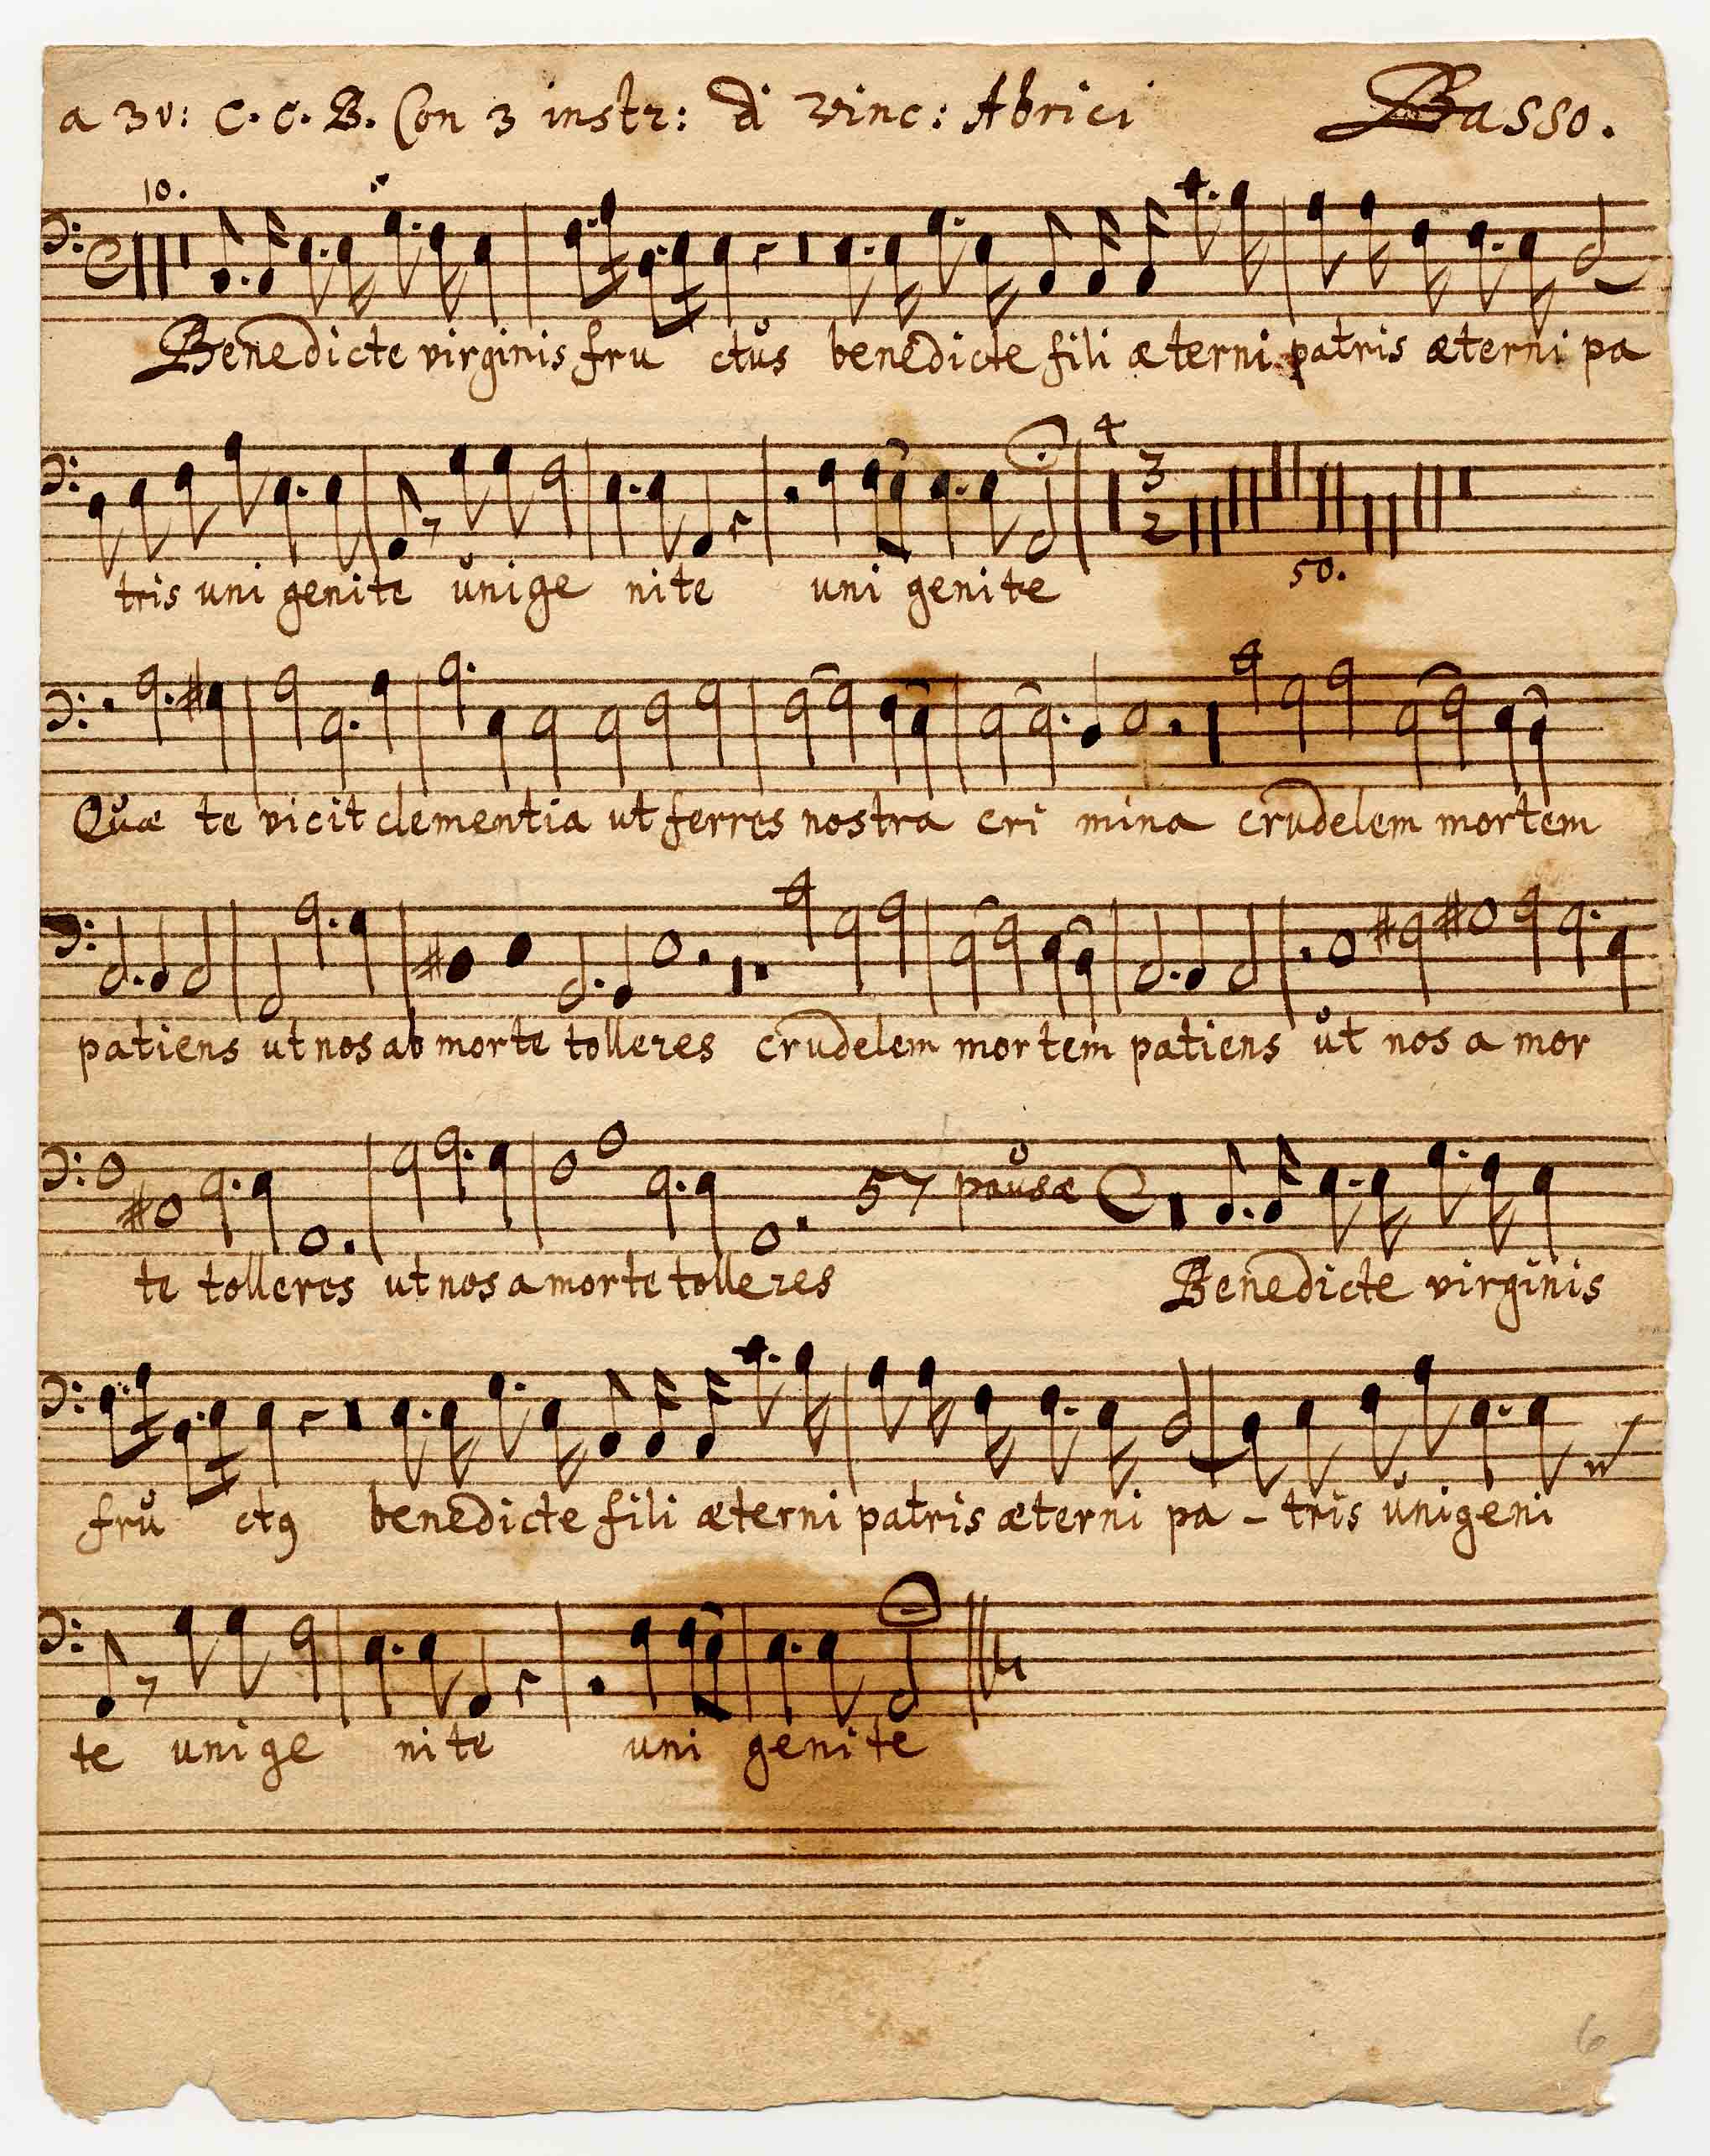 a 3v: C. C. B. Con 3 instr: di Vinc: Abrici Basso.
10.
Benedicte virginis fru ctůs benedicte fili æterni patris æterni pa
4
3
2
50.
tris uni genite ůnige nite uni genite
Quæ te vicit clementia ut ferres nostra cri mina crudelem mortem
patiens ut nos ab morte tolleres crudelem mortem patiens ůt nos a mor
57 paůsæ
te tolleres ut nos a morte tolleres Benedicte virginis
frů ctꝯ benedicte fili æterni patris æterni pa - tris ůnigeni
te unige nite uni genite
6